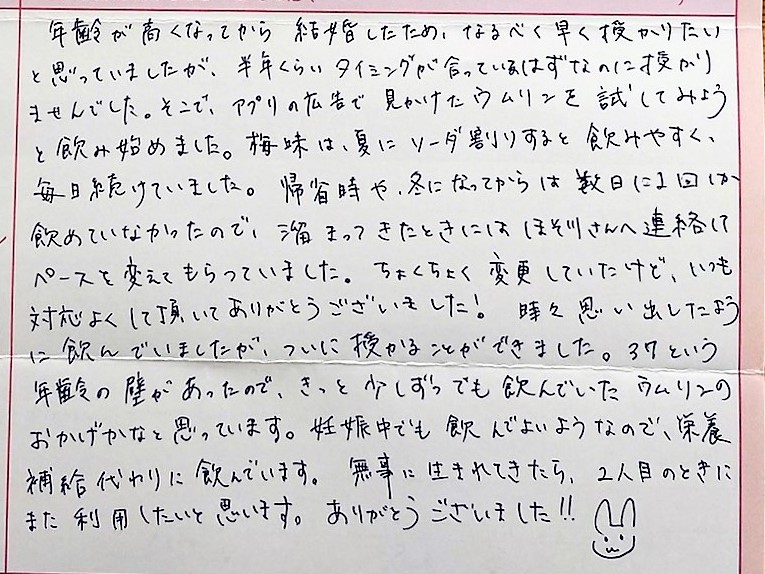 年齢が高くなってから結婚したため、なるべく早く授かりたい
と思っていましたが、半年くらいタイミングが合っているはずなのに授かり
ませんでした。そこで、アプリの広告で見かけたウムリンを試してみよう
と飲み始めました。梅味は、夏にソーダ割りすると飲みやすく、
毎日続けていました。帰省時や、冬になってからは数日に1回しか
飲めていなかったので、溜まってきたときにはほそ川さんへ連絡して
ペースを変えてもらっていました。ちょくちょく変更していたけど、いつも
対応よくして頂いてありがとうございました！ 時々思い出したよう
に飲んでいましたが、ついに授かることができました。37という
年齢の壁があったので、きっと少しずつでも飲んでいたウムリンの
おかげかなと思っています。妊娠中でも飲んでよいようなので、栄養
補給代わりに飲んでいます。無事に生まれてきたら、2人目のときに
また利用したいと思います。ありがとうございました!!